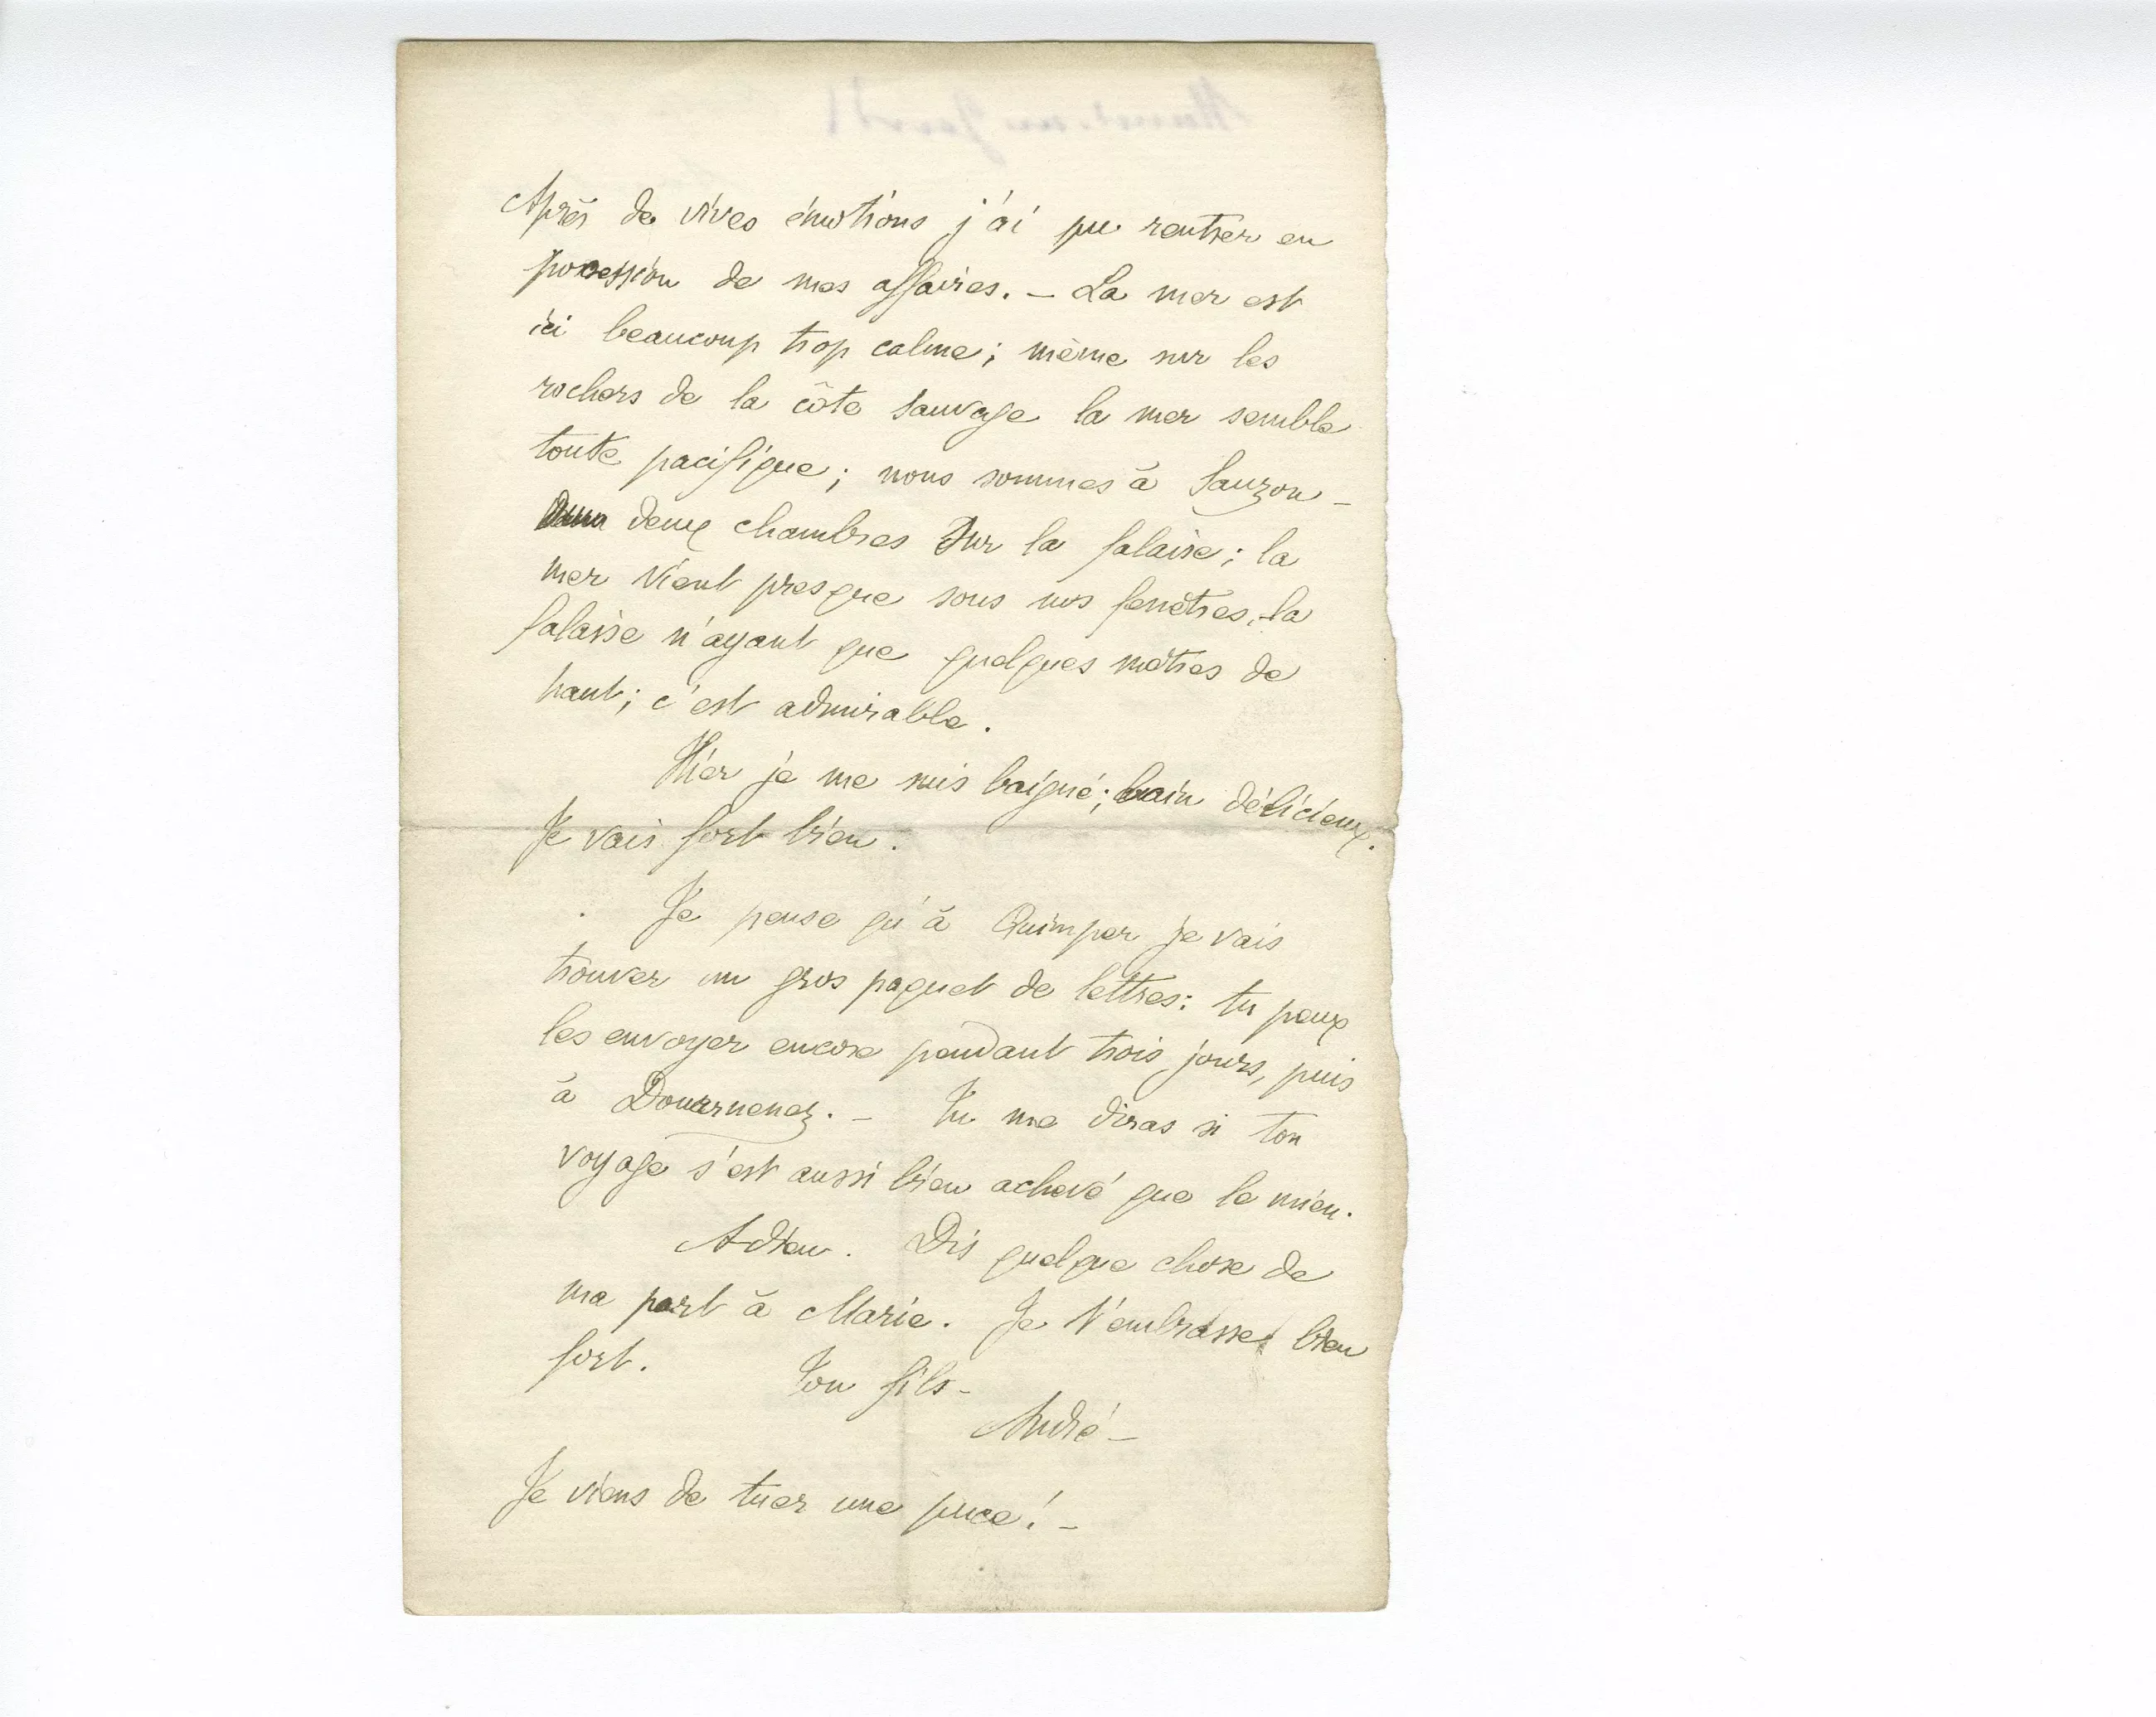 Après de vives émotions j'ai pu rentrer en
possession de mes affaires. – La mer est
ici beaucoup trop calme ; même sur les
rochers de la côte sauvage la mer semble
toute pacifique ; nous sommes à Sauzon –
deux chambres sur la falaise ; la
mer vient presque sous nos fenêtres, la
falaise n'ayant que quelques mètres de
haut ; c'est admirable.
Hier je me suis baigné ; bain délicieux.
Je vais fort bien.
Je pense qu'à Quimper je vais
trouver un gros paquet de lettres : tu peux
les envoyer encore pendant trois jours, puis
à Douarnenez. – Tu me diras si ton
voyage s'est aussi bien achevé que le mien.
Adieu. Dis quelque chose de
ma part à Marie. Je t'embrasse bien
fort. Ton fils –
André –
Je viens de tuer une puce ! –